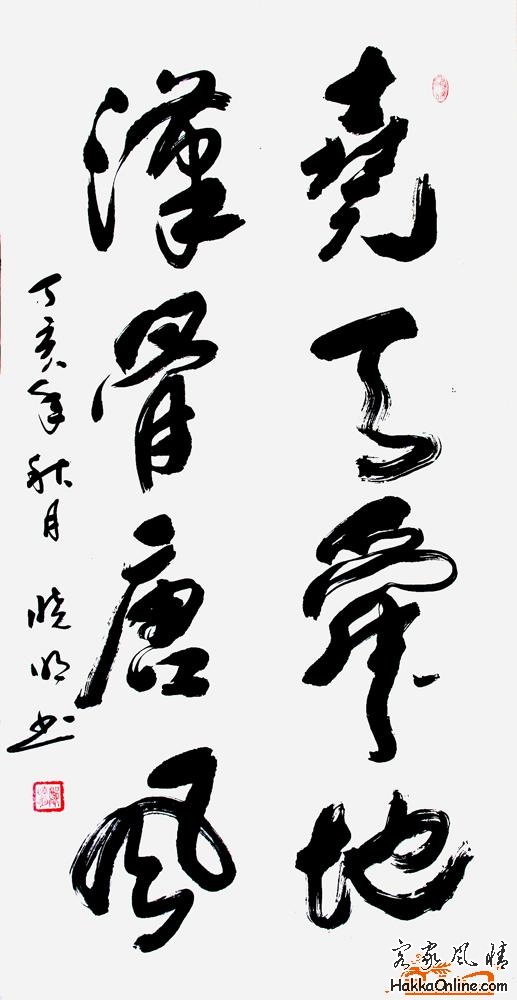 堯天舜地
漢骨唐風
丁亥年秋月 曉明书
客家风情
HakkaOnline.com